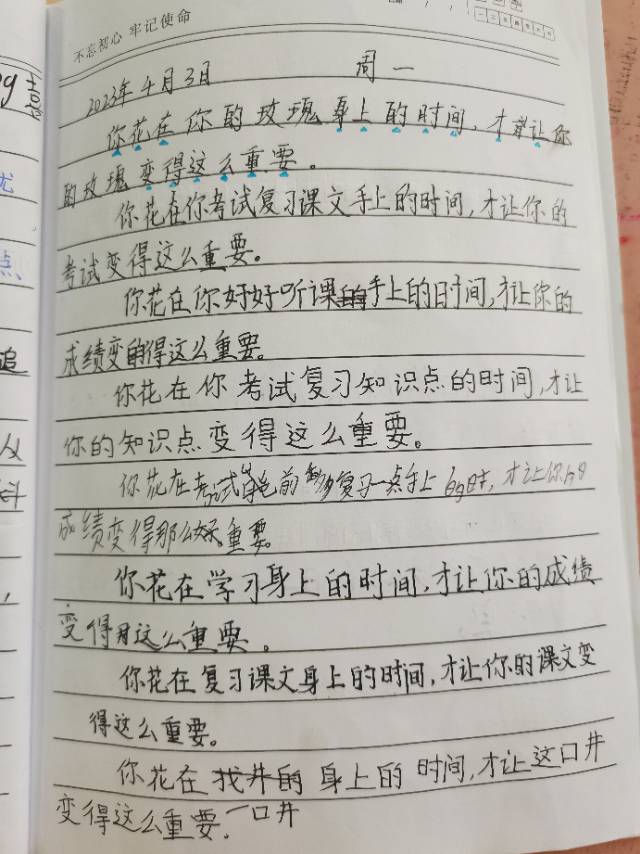 不忘初心 牢记使命
2023年4月3日 周一
你花在你的玫瑰身上的时间，才让你
的玫瑰变得这么重要。
你花在你考试复习课文手上的时间，才让你的
考试变得这么重要。
你花在你好好听课手上的时间，才让你的
成绩变得这么重要。
你花在你考试复习知识点的时间，才让
你的知识点变得这么重要。
你花在考试前多复习一点手上的时，才让你的
成绩变得那么重要。
你花在学习身上的时间，才让你的成绩
变得这么重要。
你花在复习课文身上的时间，才让你的课文变
得这么重要。
你花在找井的身上的时间，才让这口井
变得这么重要。一口井
追
从